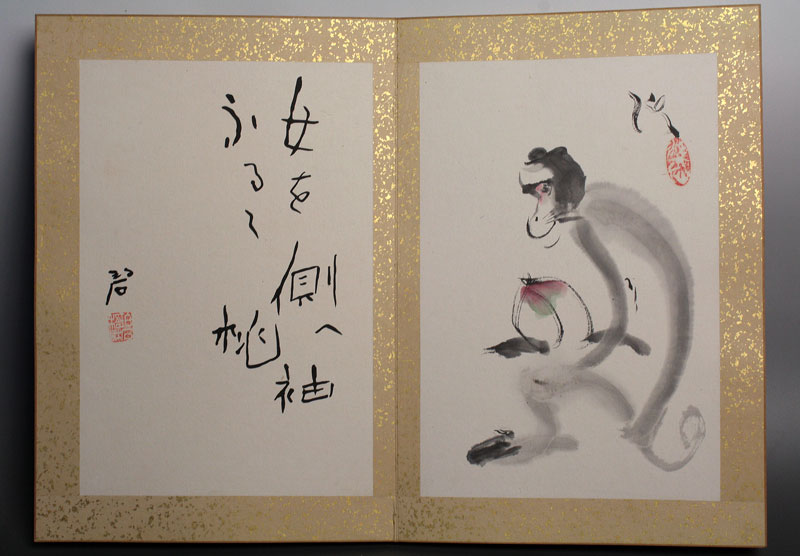 女を側へ袖
ふるゝ桃
碧